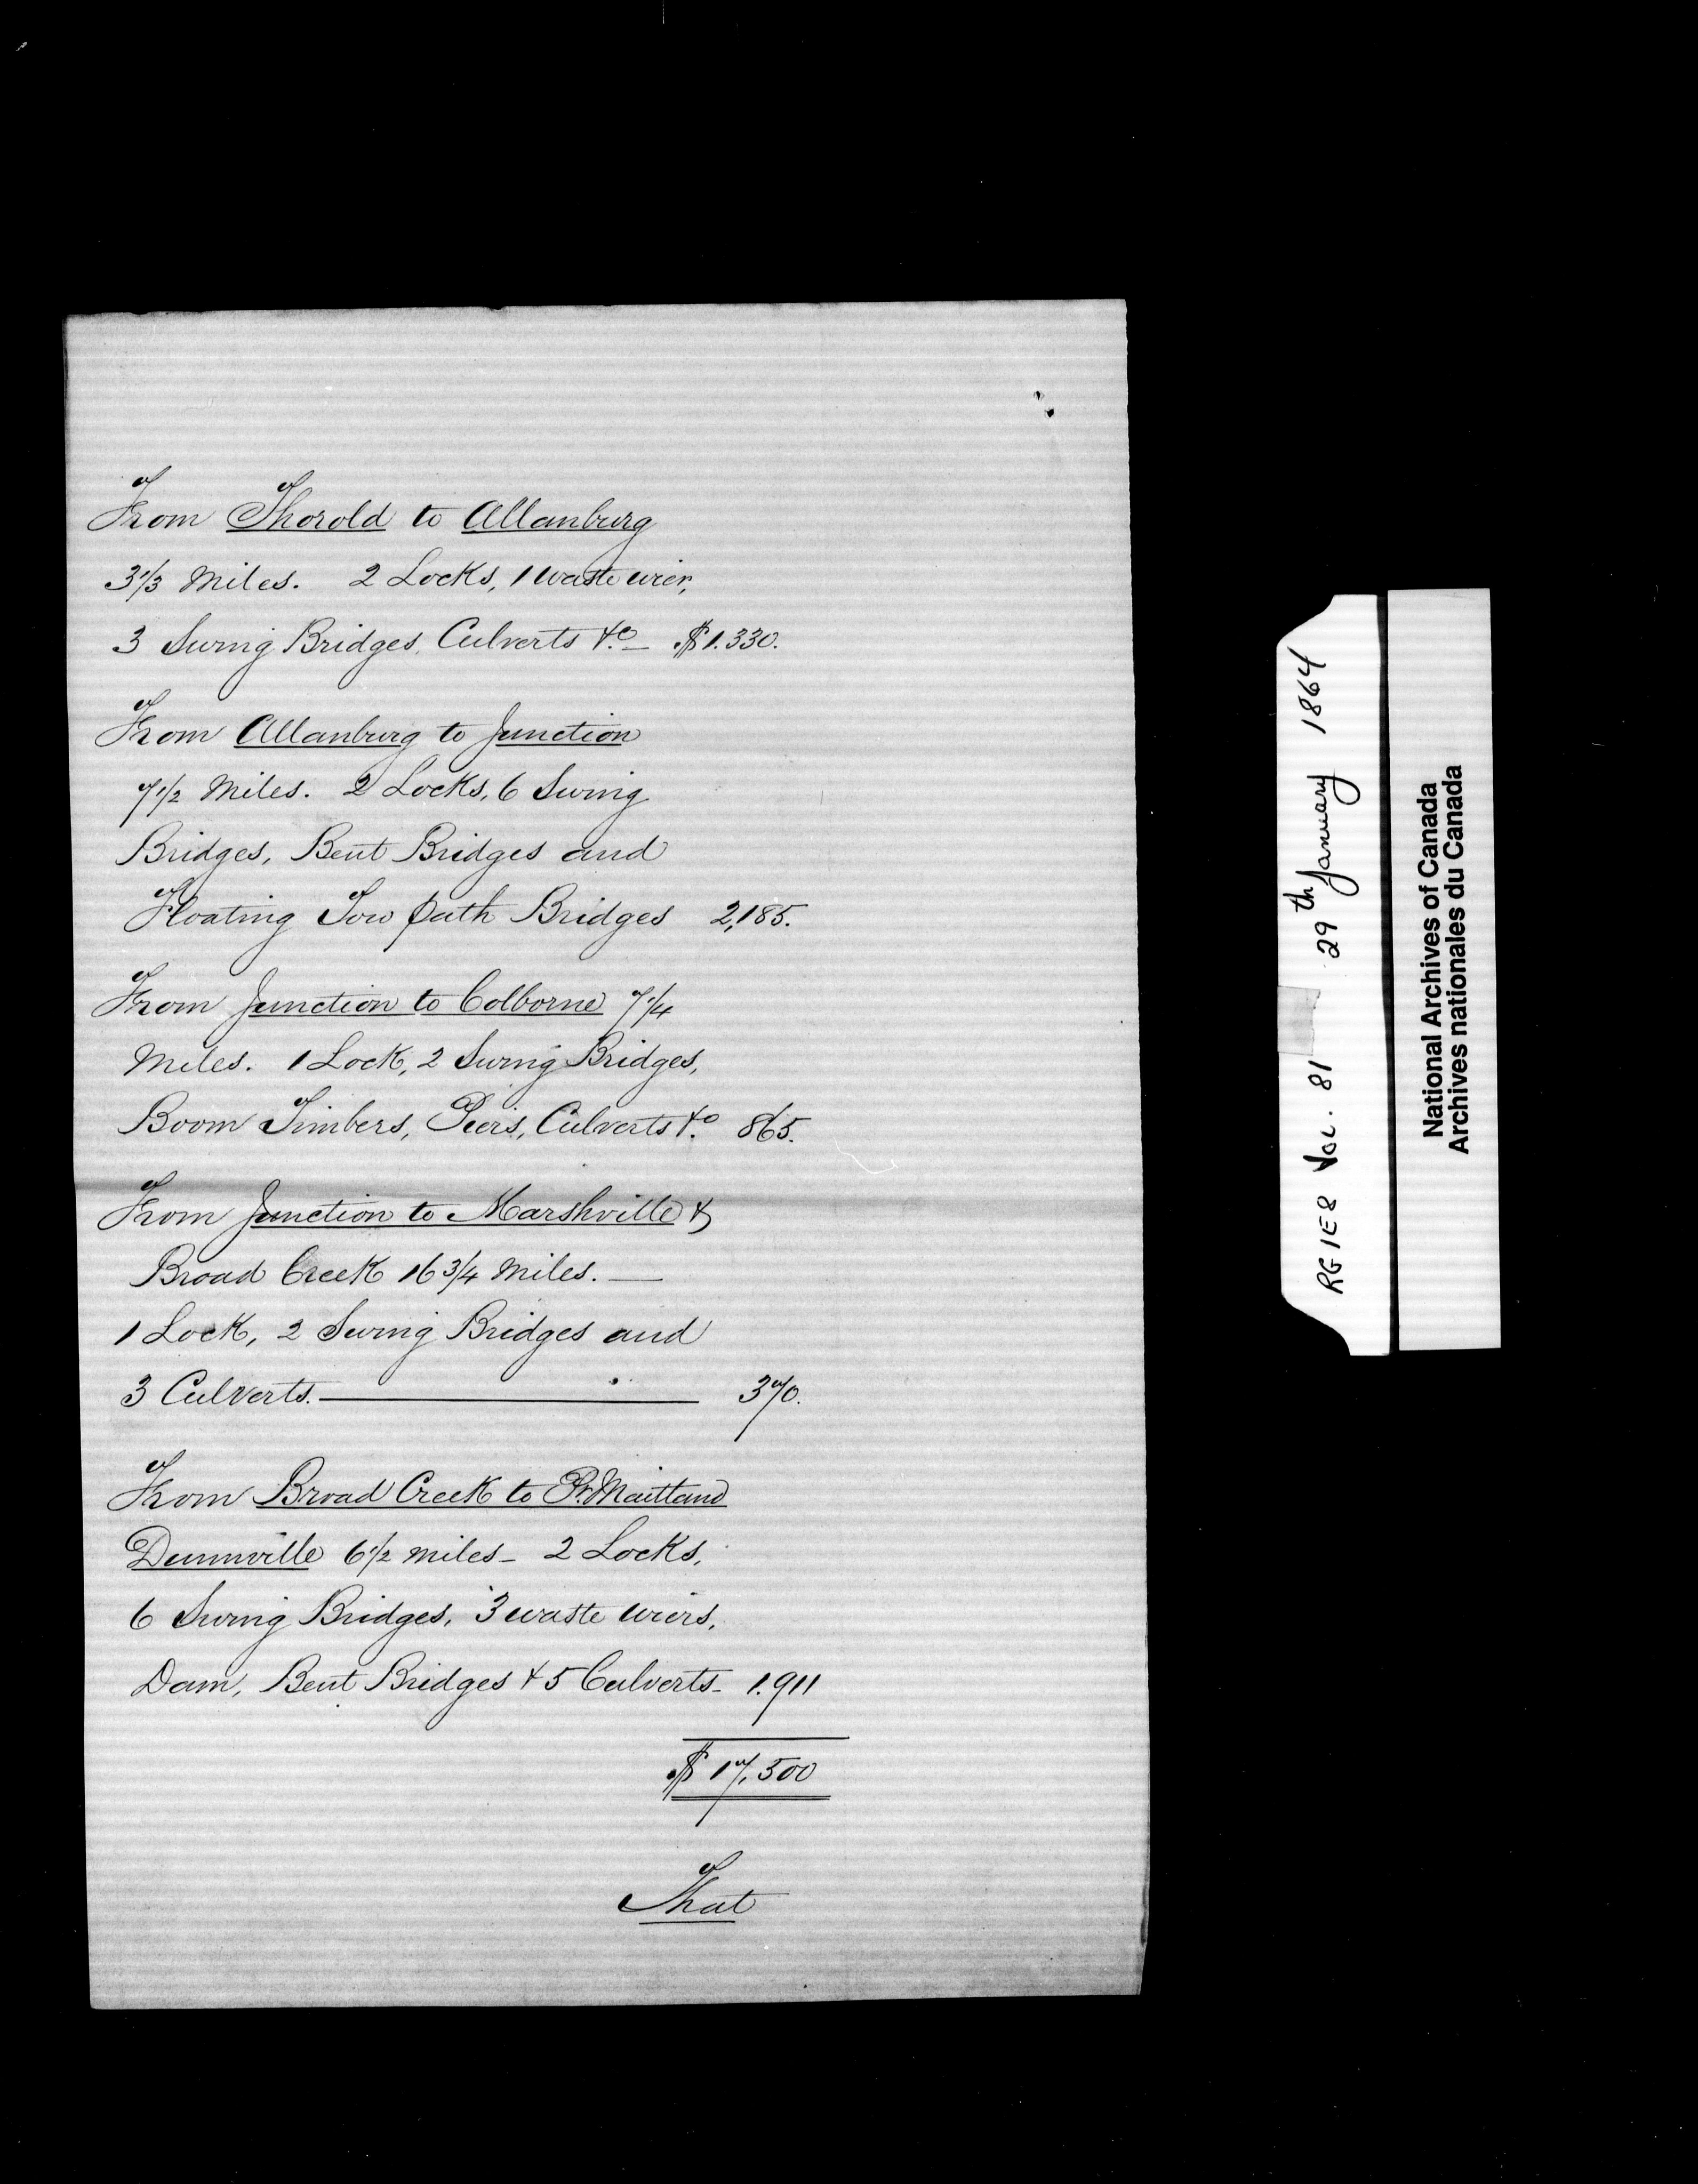 From Thorold to Allanburg
3 1/3 Miles. 2 Locks, 1 waste wier,
3 Swing Bridges, Culverts &c. — $1.330.
From Allanburg to Junction
7 1/2 Miles. 2 Locks, 6 Swing
Bridges, Bent Bridges and
Floating Tow path Bridges 2,185.
From Junction to Colborne 7 1/4
Miles. 1 Lock, 2 Swing Bridges,
Boom Timbers, Piers, Culverts &c. 865.
From Junction to Marshville &
Broad Creek 16 3/4 Miles. —
1 Lock, 2 Swing Bridges and
3 Culverts. — 370.
From Broad Creek to Pt. Maitland
Dunnville 6 1/2 miles — 2 Locks,
6 Swing Bridges, 3 waste wiers,
Dam, Bent Bridges & 5 Culverts — 1.911
$ 17,500
That
RG 1E8 Vol. 81 29th January 1864
National Archives of Canada
Archives nationales du Canada